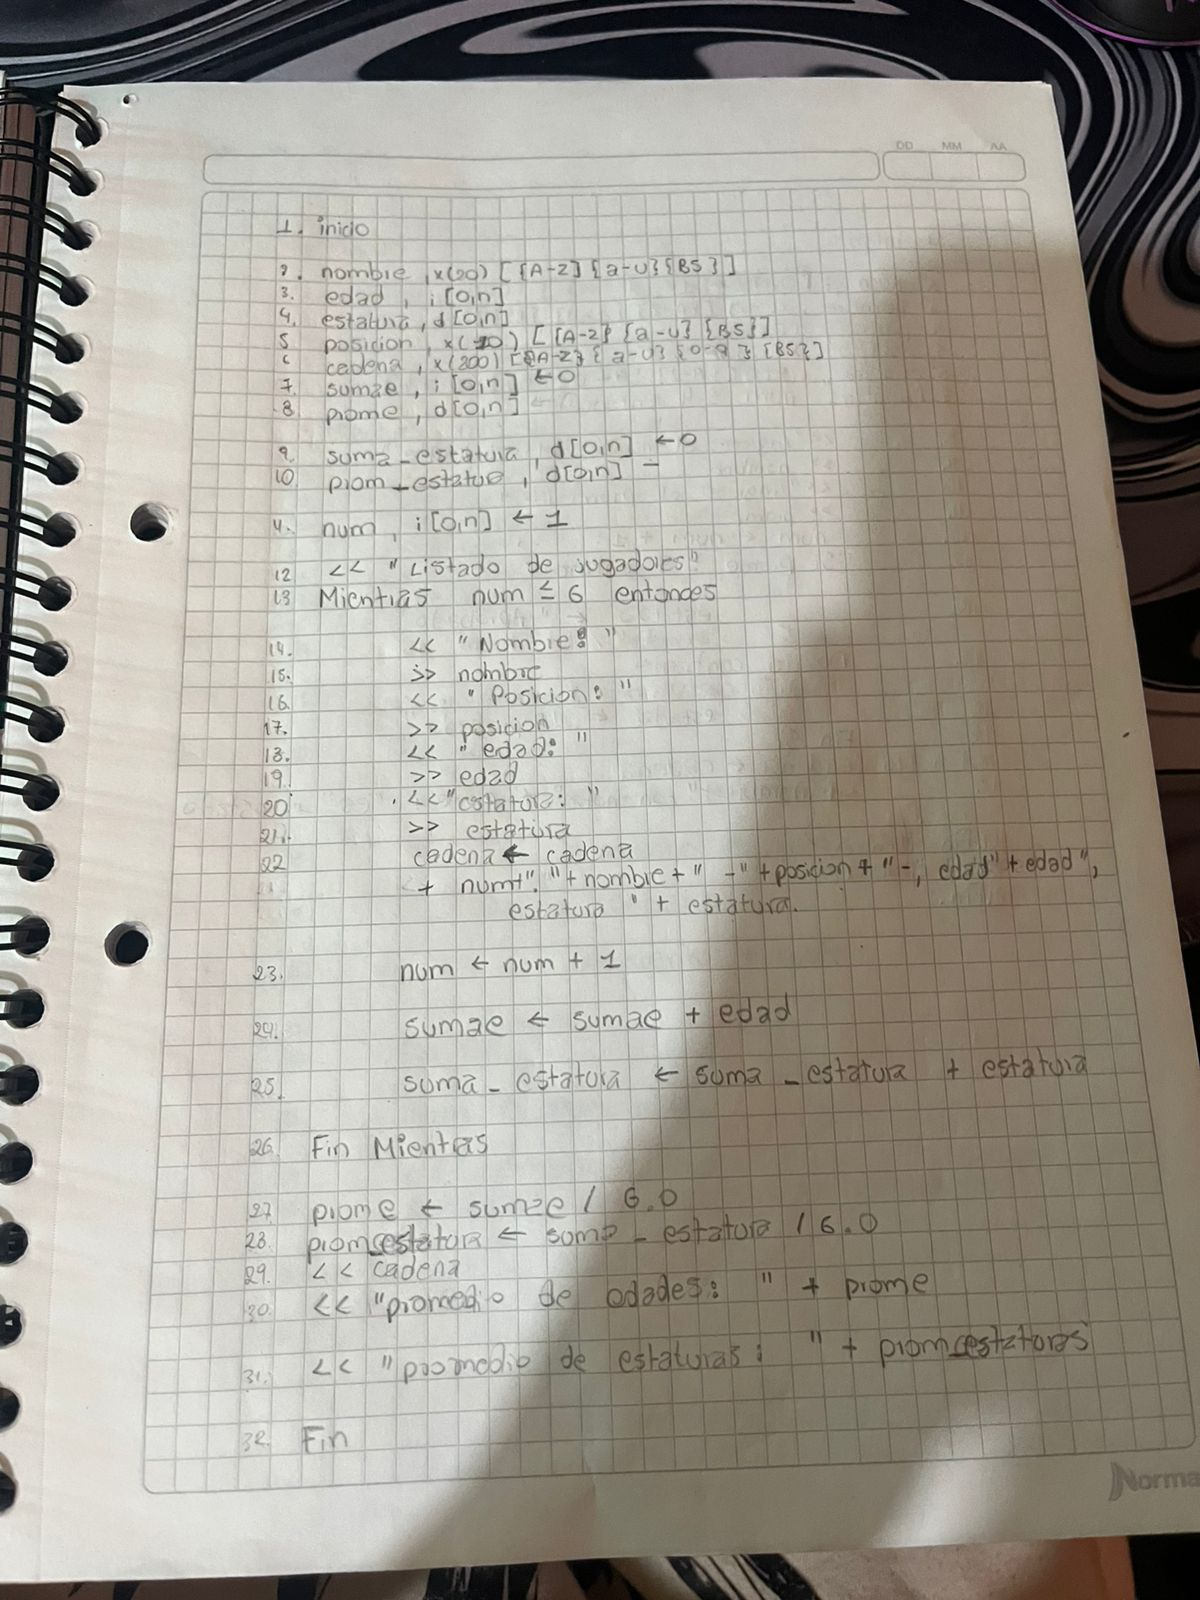 DD MM AA
1. inicio
2. nombre, x(20) [{A-Z} {a-u} {BS}]
3. edad, i [0,n]
4. estatura, d [0,n]
5 posicion, x(20) [{A-Z} {a-u} {BS}]
6 cadena, x(200) [{A-Z} {a-u} {0-9} {BS}]
7. sumae, i [0,n] ← 0
8 prome, d [0,n]
9. suma_estatura, d[0,n] ← 0
10. prom_estatue, d[0,n] -
4. num, i [0,n] ← 1
12 << "Listado de jugadores"
13 Mientras num ≤ 6 entonces
14. << "Nombre: "
15. >> nombre
16. << "Posicion: "
17. >> posicion
18. << "edad: "
19. >> edad
20 << "estatura: "
21. >> estatura
22 cadena ← cadena
+ num+". "+nombre+" -"+posicion+"-, edad"+edad",
estatura "+ estatura.
23. num ← num + 1
24. sumae ← sumae + edad
25. suma_estatura ← suma_estatura + estatura
26. Fin Mientras
27. prome ← sumae / 6.0
28. prom_estatura ← suma_estatura / 6.0
29. << cadena
30. << "promedio de edades: " + prome
31. << "promedio de estaturas: " + prom_estaturas
32. Fin
Norma